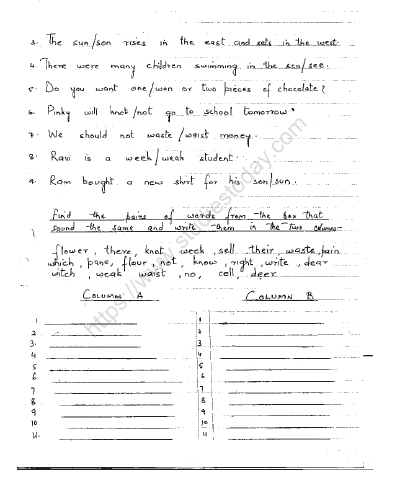 3. The sun/son rises in the east and sets in the west.
4. There were many children swimming in the sea/see.
5. Do you want one/won or two pieces of chocolate?
6. Pinky will knot/not go to school tomorrow.
7. We should not waste/waist money.
8. Ravi is a week/weak student.
9. Ram bought a new shirt for his son/sun.
Find the pairs of words from the box that
sound the same and write them in the two columns-
flower, there, knot, week, sell, their, waste, pain
which, pane, flour, not, know, right, write, dear
witch, weak, waist, no, cell, deer
COLUMN A COLUMN B
1 1
2 2
3. 3
4 4
5 5
6 6
7 7
8 8
9 9
10 10
11. 11
https://www.studiestoday.com